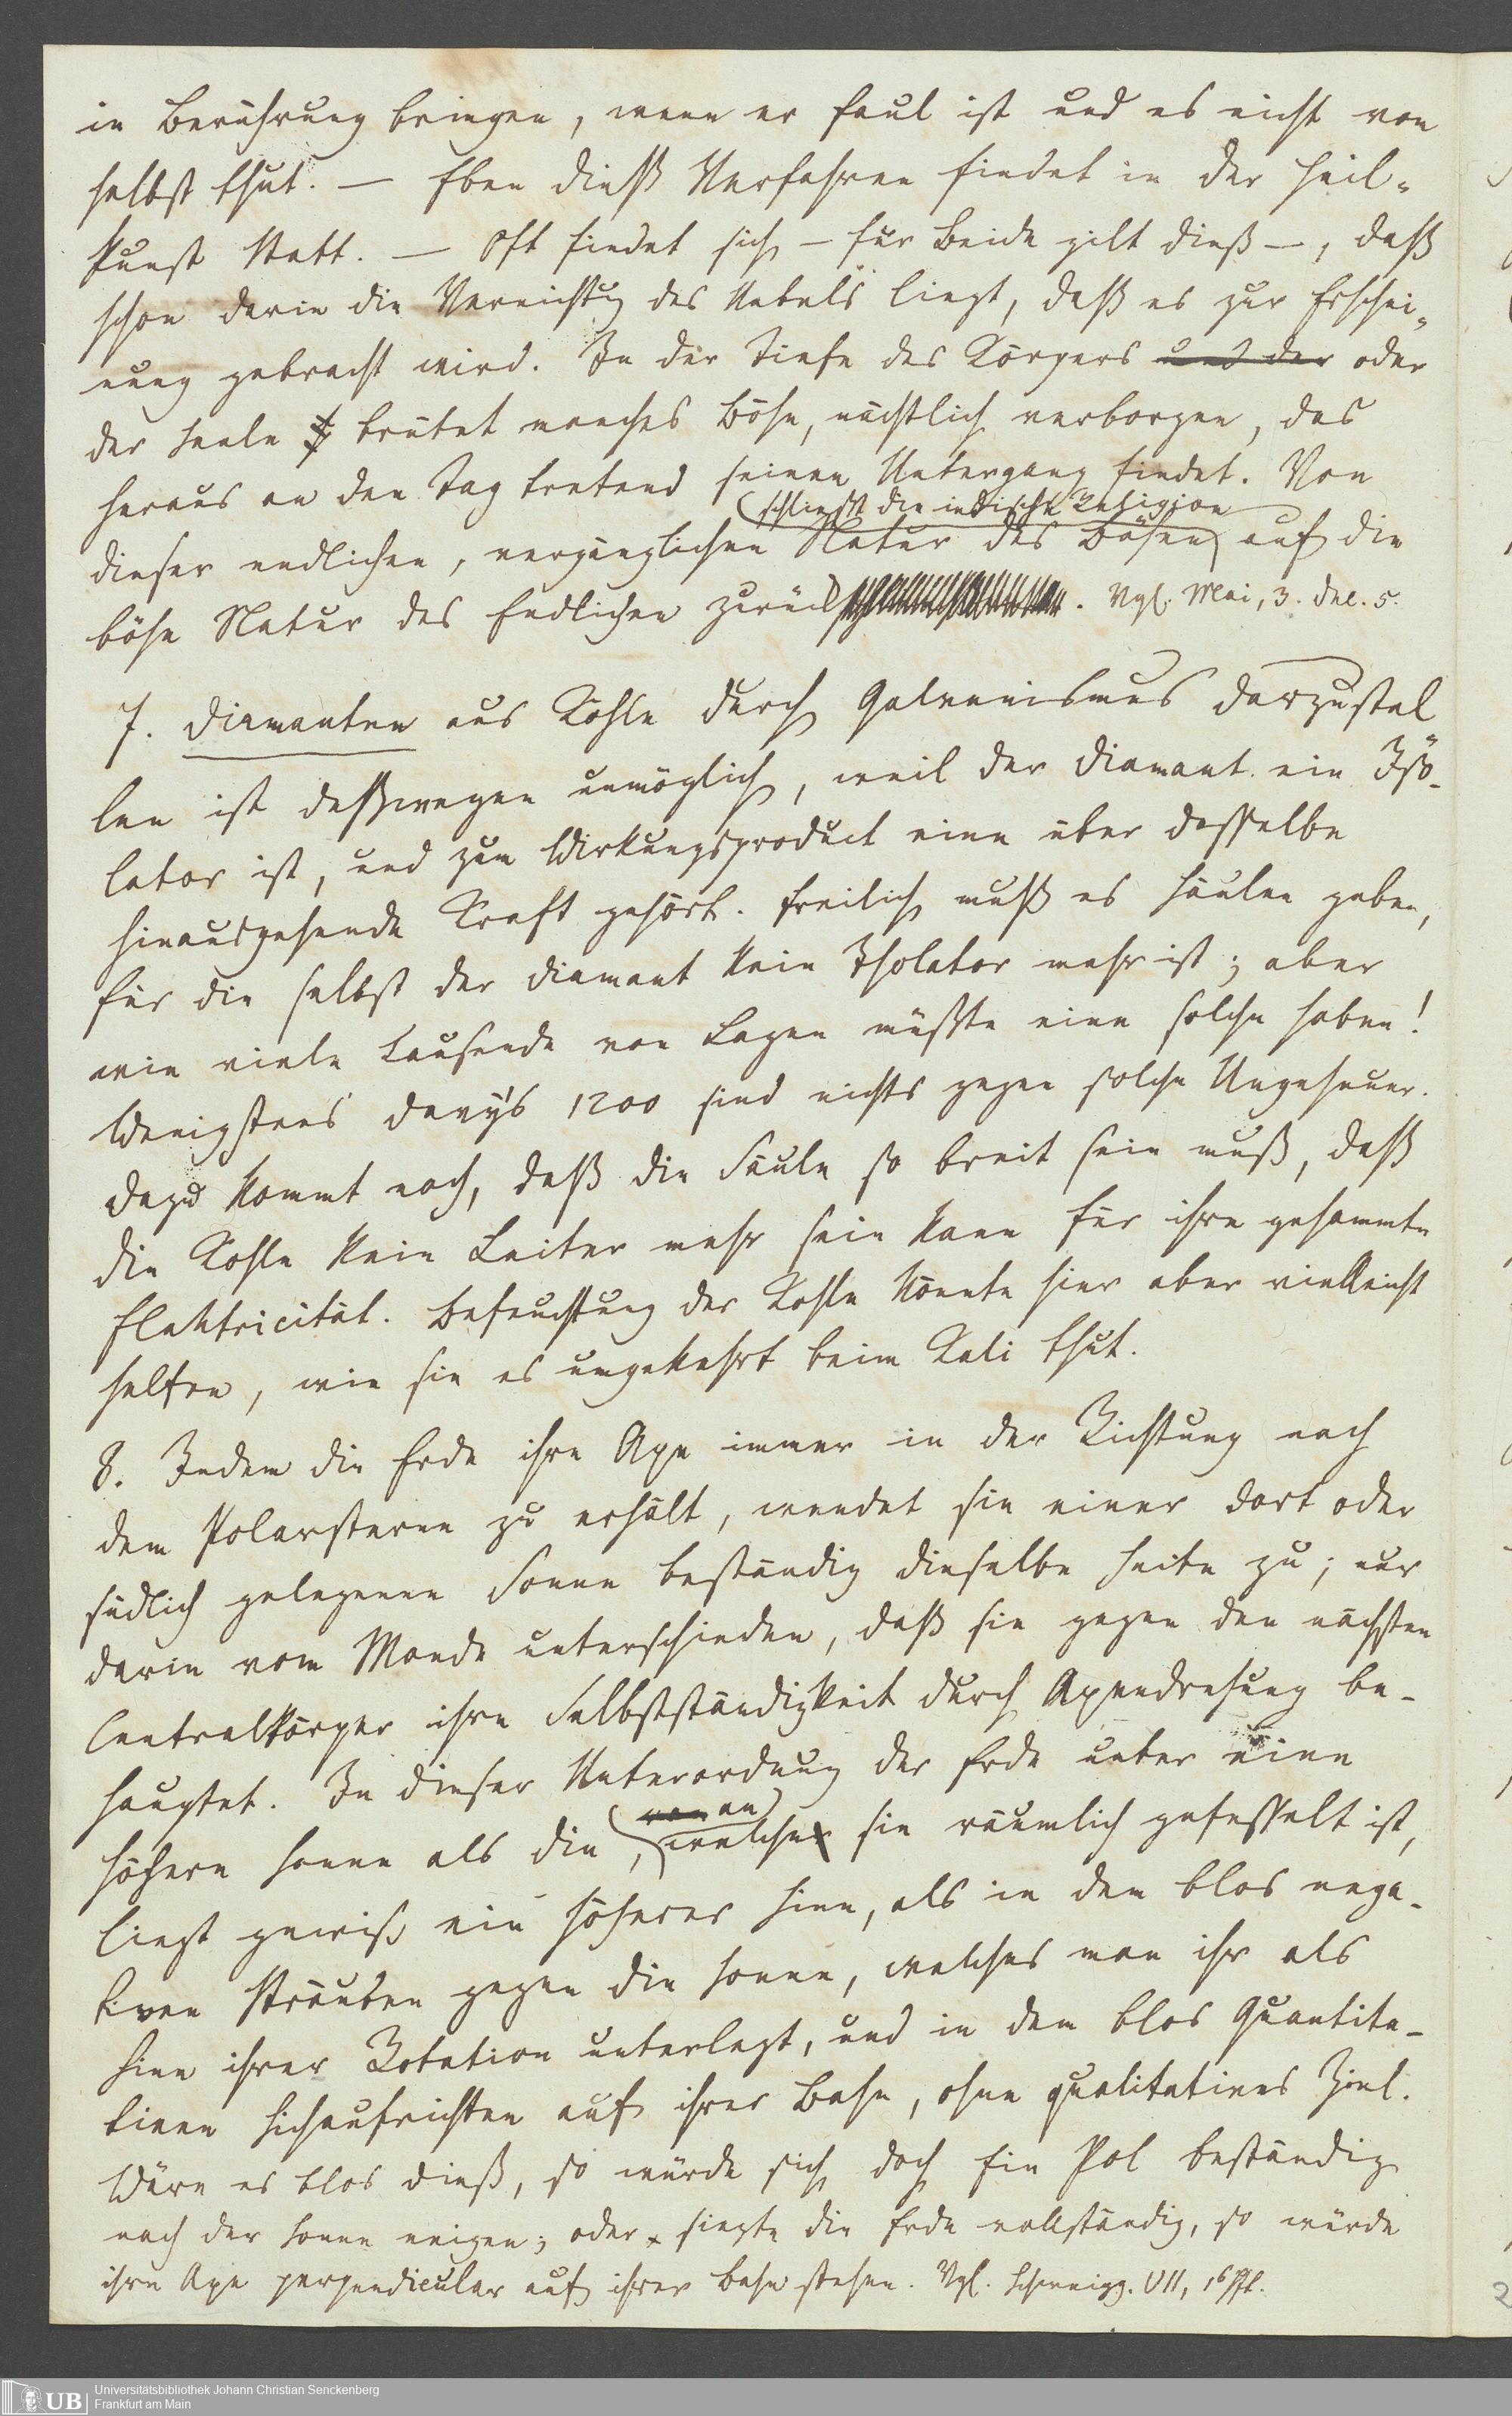 in Berührung bringen, wenn er faul ist und es nicht von
selbst thut. — Eben dieß Verfahren findet in der Heil-
kunst Statt. — Oft findet sich, — für Beide gilt dieß —, daß
schon darin die Vernichtung des Uebels liegt, daß es zur Erschei-
nung gebracht wird. In der Tiefe des Körpers und der oder
der Seele brütet manches Böse, nächtlich verborgen, das
heraus an den Tag tretend seinen Untergang findet. Von
schließt die indische Religion
dieser endlichen, vergänglichen Natur des Bösen auf die
böse Natur des Endlichen zurück. Vgl. Mai, 3. Del. 5.
7. Diamanten aus Kohle durch Galvanismus darzustel
len ist deßwegen unmöglich, weil der Diamant ein Iso-
lator ist, und zum Wirkungsproduct eine über dasselbe
hinausgehende Kraft gehört. Freilich muß es Säulen geben,
für die selbst der Diamant kein Isolator mehr ist; aber
wie viele Tausende von Lagen müßte eine solche haben!
Wenigstens Davy's 1200 sind nichts gegen solche Ungeheuer.
Dazu kommt noch, daß die Säule so breit sein muß, daß
die Kohle kein Leiter mehr sein kann für ihre gesammte
Elektricität. Befeuchtung der Kohle könnte hier aber vielleicht
helfen, wie sie es umgekehrt beim Kali thut.
8. Indem die Erde ihre Axe immer in der Richtung nach
dem Polarsterne zu erhält, wendet sie einer dort oder
südlich gelegenen Sonne beständig dieselbe Seite zu; nur
darin vom Monde unterschieden, daß sie gegen den nächsten
Centralkörper ihre Selbstständigkeit durch Axendrehung be-
hauptet. In dieser Unterordnung der Erde unter eine
von an
höhere Sonne als die, welche sie räumlich gefesselt ist,
liegt gewiß ein höherer Sinn, als in dem blos nega-
tiven Sträuben gegen die Sonne, welches man ihr als
Sinn ihrer Rotation unterlegt, und in dem blos quantita-
tiven Sichaufrichten auf ihrer Bahn, ohne qualitatives Ziel.
Wäre es blos dieß, so würde sich doch Ein Pol beständig
nach der Sonne neigen; oder siegte die Erde vollständig, so würde
ihre Axe perpendicular auf ihrer Bahn stehen. Vgl. Schweigg. VII, 16
UB
Universitätsbibliothek Johann Christian Senckenberg
Frankfurt am Main